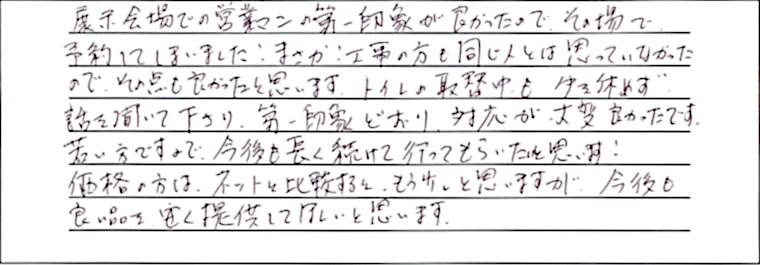 展示会場での営業マンの第一印象が良かったので、その場で
予約してしまいました！まさか！工事の方も同じ人とは思っていなかった
ので、その点も良かったと思います。トイレの取替中も手を休めず
話を聞いて下さり、第一印象どおり、対応が大変良かったです。
若い方ですので、今後も長く続けて行ってもらいたいと思います！
価格の方は、ネットと比較すると、もう少しと思いますが、今後も
良い品を安く提供して欲しいと思います。